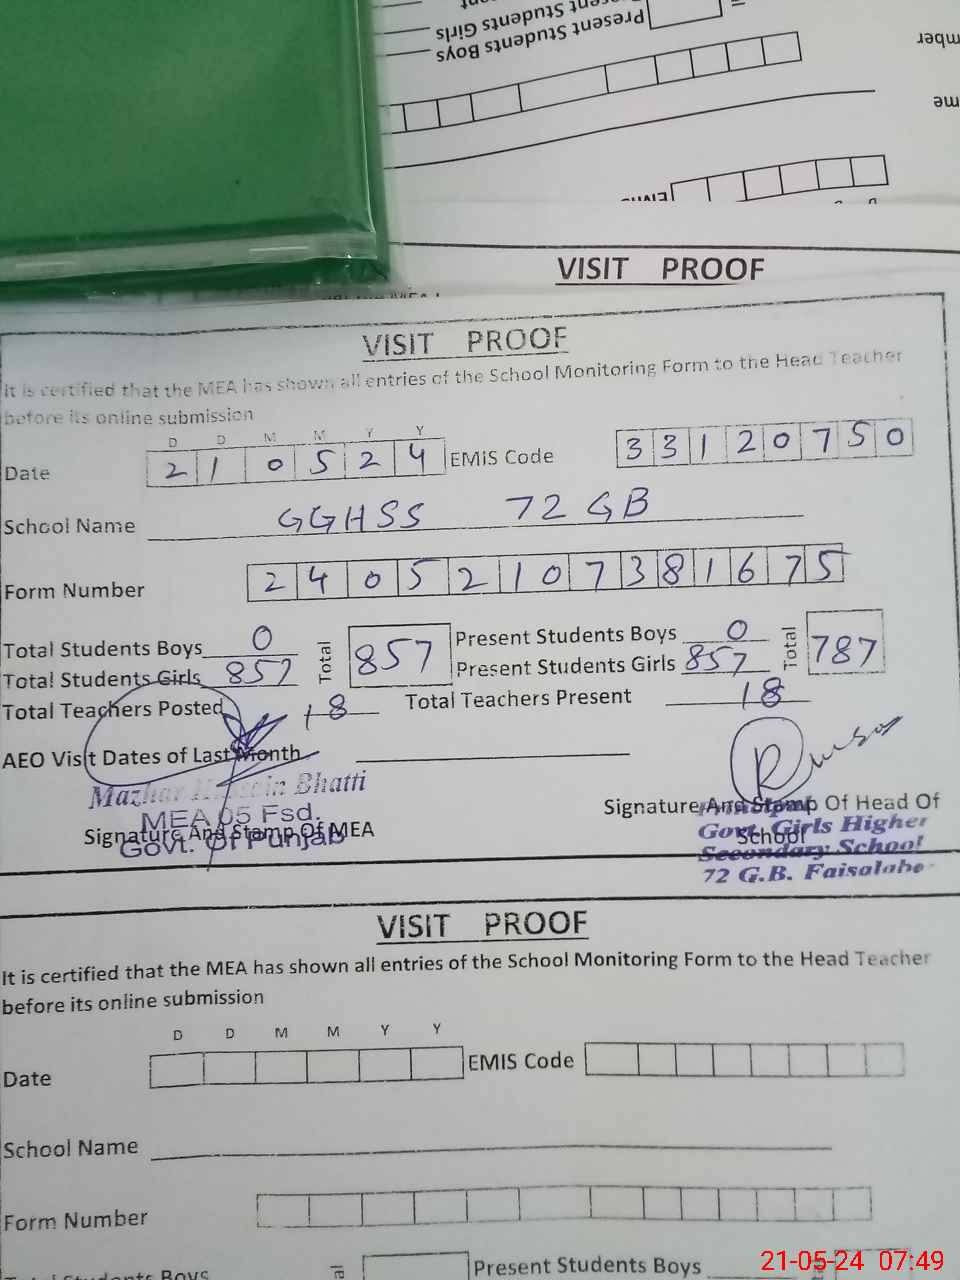 Present Students Girls
Present Students Boys
VISIT PROOF
VISIT PROOF
It is certified that the MEA has shown all entries of the School Monitoring Form to the Head Teacher
before its online submission
D D M M Y Y
Date 2 1 0 5 2 4 EMIS Code 3 3 1 2 0 7 5 0
School Name GGHSS 72 GB
Form Number 2 4 0 5 2 1 0 7 3 8 1 6 7 5
Total Students Boys 0 Total 857 Present Students Boys 0 Total 787
Total Students Girls 857 Present Students Girls 857
Total Teachers Posted 18 Total Teachers Present 18
AEO Visit Dates of Last Month
Mazhar Hussain Bhatti
MEA 05 Fsd.
Govt. Of Punjab
Signature And Stamp Of MEA
Signature And Stamp Of Head Of
School
Govt. Girls Higher
Secondary School
72 G.B. Faisalaba
VISIT PROOF
It is certified that the MEA has shown all entries of the School Monitoring Form to the Head Teacher
before its online submission
D D M M Y Y
Date EMIS Code
School Name
Form Number
Present Students Boys
21-05-24 07:49